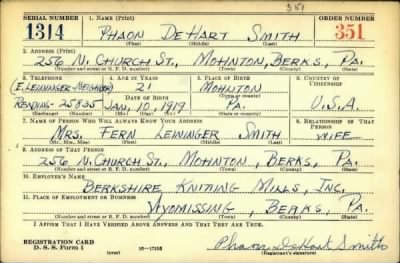 351
SERIAL NUMBER 1. NAME (Print) ORDER NUMBER
1314 PHAON DEHART SMITH 351
(First) (Middle) (Last)
2. ADDRESS (Print)
256 N. CHURCH ST., MOHNTON, BERKS, PA.
(Number and street or R. F. D. number) (Town) (County) (State)
3. TELEPHONE 4. AGE IN YEARS 5. PLACE OF BIRTH 6. COUNTRY OF CITIZENSHIP
(E. LEININGER-NEIGHBOR) 21 MOHNTON
DATE OF BIRTH
READING-25835 JAN. 10, 1919 PA. U.S.A.
(Exchange) (Number) (Mo.) (Day) (Yr.) (State or country)
7. NAME OF PERSON WHO WILL ALWAYS KNOW YOUR ADDRESS 8. RELATIONSHIP OF THAT PERSON
MRS. FERN LEININGER SMITH WIFE
(Mr., Mrs., Miss) (First) (Middle) (Last)
9. ADDRESS OF THAT PERSON
256 N. CHURCH ST., MOHNTON, BERKS, PA.
(Number and street or R. F. D. number) (Town) (County) (State)
10. EMPLOYER'S NAME
BERKSHIRE KNITTING MILLS, INC.
11. PLACE OF EMPLOYMENT OR BUSINESS
WYOMISSING, BERKS, PA.
(Number and street or R. F. D. number) (Town) (County) (State)
I AFFIRM THAT I HAVE VERIFIED ABOVE ANSWERS AND THAT THEY ARE TRUE.
REGISTRATION CARD
D. S. S. Form 1 (over) Phaon DeHart Smith
(Registrant's signature)